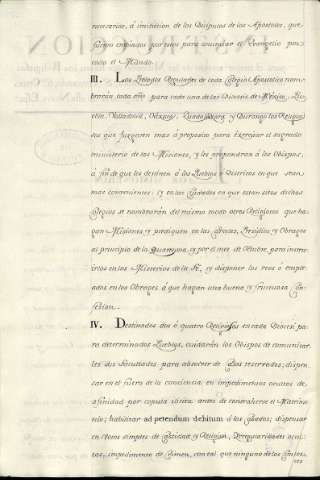 necesarias, á imitacion de los Discipulos de los Apostoles, que
fueron enviados por estos para anunciar el Evangelio por
todo el Mundo.
III. Los Prelados Regulares de cada Colegio Apostolico nom-
brarán cada año para cada una de las Diocesis de Mexico,
Valladolid, Oaxaca, Guadalaxara y Durango los Religio-
sos que juzgaren mas á proposito para exercitar el sagrado
ministerio de las Misiones, y les propondran á los Obispos,
á fin de que les destinen á los Pueblos o Distritos en que sean
mas convenientes: y en las Ciudades en que esten sitos dichos
Colegios se nombrarán del mismo modo otros Religiosos que ha-
gan Misiones y prediquen en las Carceles, Presidios y Obrages
al principio de la Quaresma, y por el mes de Octubre para instru-
irlos en los Misterios de la Fé, y disponer los reos ó emple-
ados en los Obrages á que hagan una buena y fructuosa Con-
fesion.
IV. Destinados dos ó quatro Religiosos en cada Diocesi pa-
ra determinados Pueblos, cuidarán los Obispos de comunicar-
les sus facultades para absolver de Casos reservados; dispen-
sar en el fuero de la conciencia en impedimentos ocultos de
afinidad por copula ilicita antes de contraherse el Matrimo-
nio; habilitar ad petendum debitum á los Casados; dispensar
en Votos simples de Castidad y Religion, Irregularidades ocul-
tas, impedimento de Crimen, con tal que ninguno de los